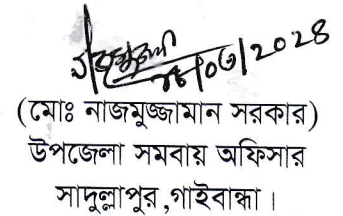 ২৮/০৩/২০২৪
(মোঃ নাজমুজ্জামান সরকার)
উপজেলা সমবায় অফিসার
সাদুল্লাপুর,গাইবান্ধা।